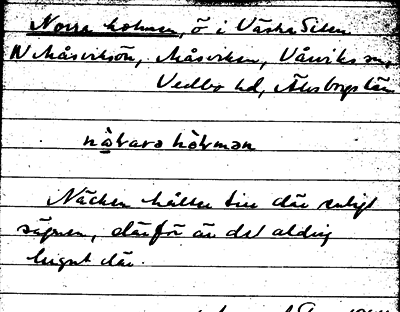 Norra holmen, ö i Västra Silen
N Måsviksön, Måsviken, Vårviks sn,
Vedbo hd, Älvsborgs län
nå̀rara hòlman
Näcken håller till där enligt
sägnen, därför är det aldrig
lugnt där.